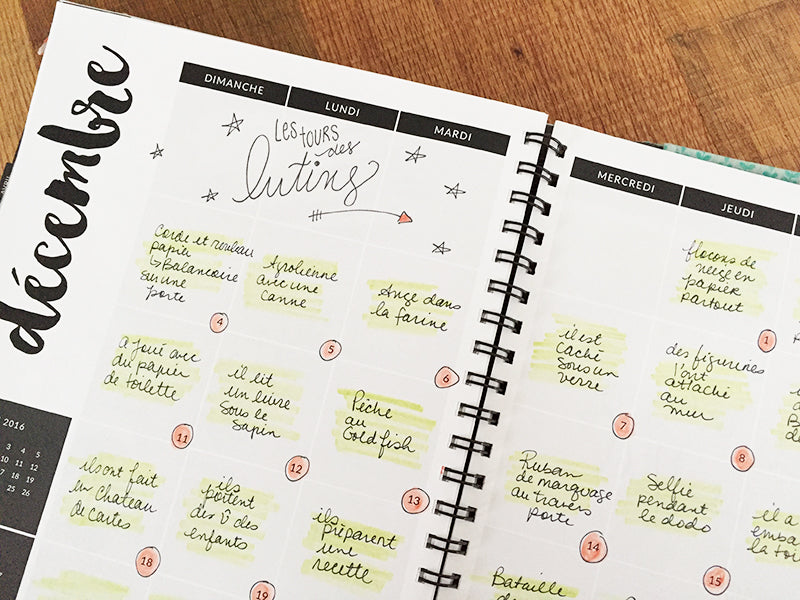 décembre
DIMANCHE
LUNDI
MARDI
MERCREDI
JEUDI
LES TOURS
des
lutins
flocons de
neige en
papier
partout
1
Corde et rouleau
papier
↳Balançoire
sur une
porte
4
Tyrolienne
avec une
canne
5
Ange dans
la farine
6
il est
caché
sous un
verre
7
des figurines
l'ont
attaché
au
mur
8
a joué avec
du papier
de toilette
11
il lit
un livre
sous le
sapin
12
Pêche
au
Goldfish
13
Ruban
de marquage
au travers
porte
14
Selfie
pendant
le dodo
15
ils ont fait
un chateau
de cartes
18
ils
portent
des
des
enfants
19
ils
préparent
une
recette
Bataille
de
il a
emba
la toi
2016
3 4 5
10 11 12
17 18 19
24 25 26